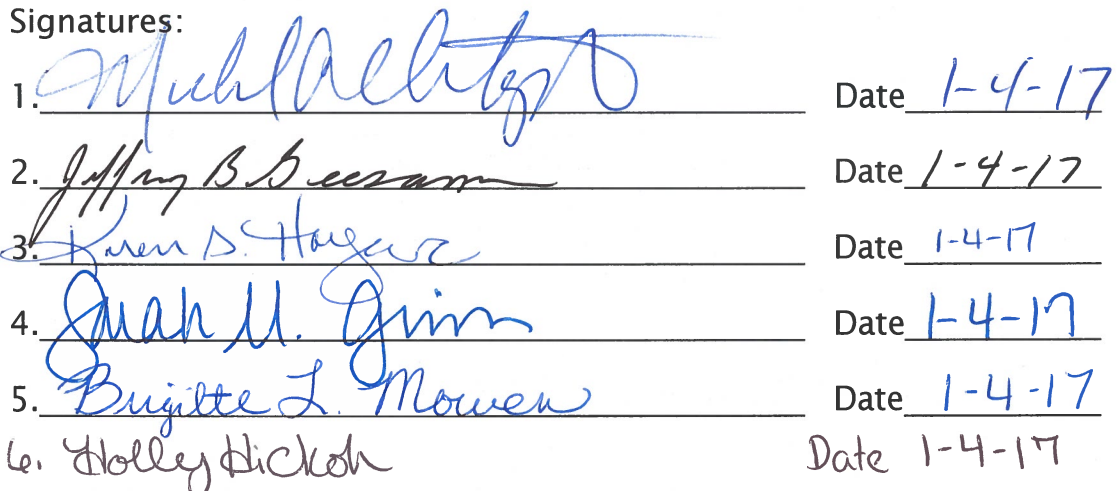 Signatures:
1. Date 1-4-17
2. Jeffrey B Geesaman Date 1-4-17
3. Karen S. Date 1-4-17
4. Sarah M. Date 1-4-17
5. Brigitte L. Mowen Date 1-4-17
6. Holly Hickoh Date 1-4-17